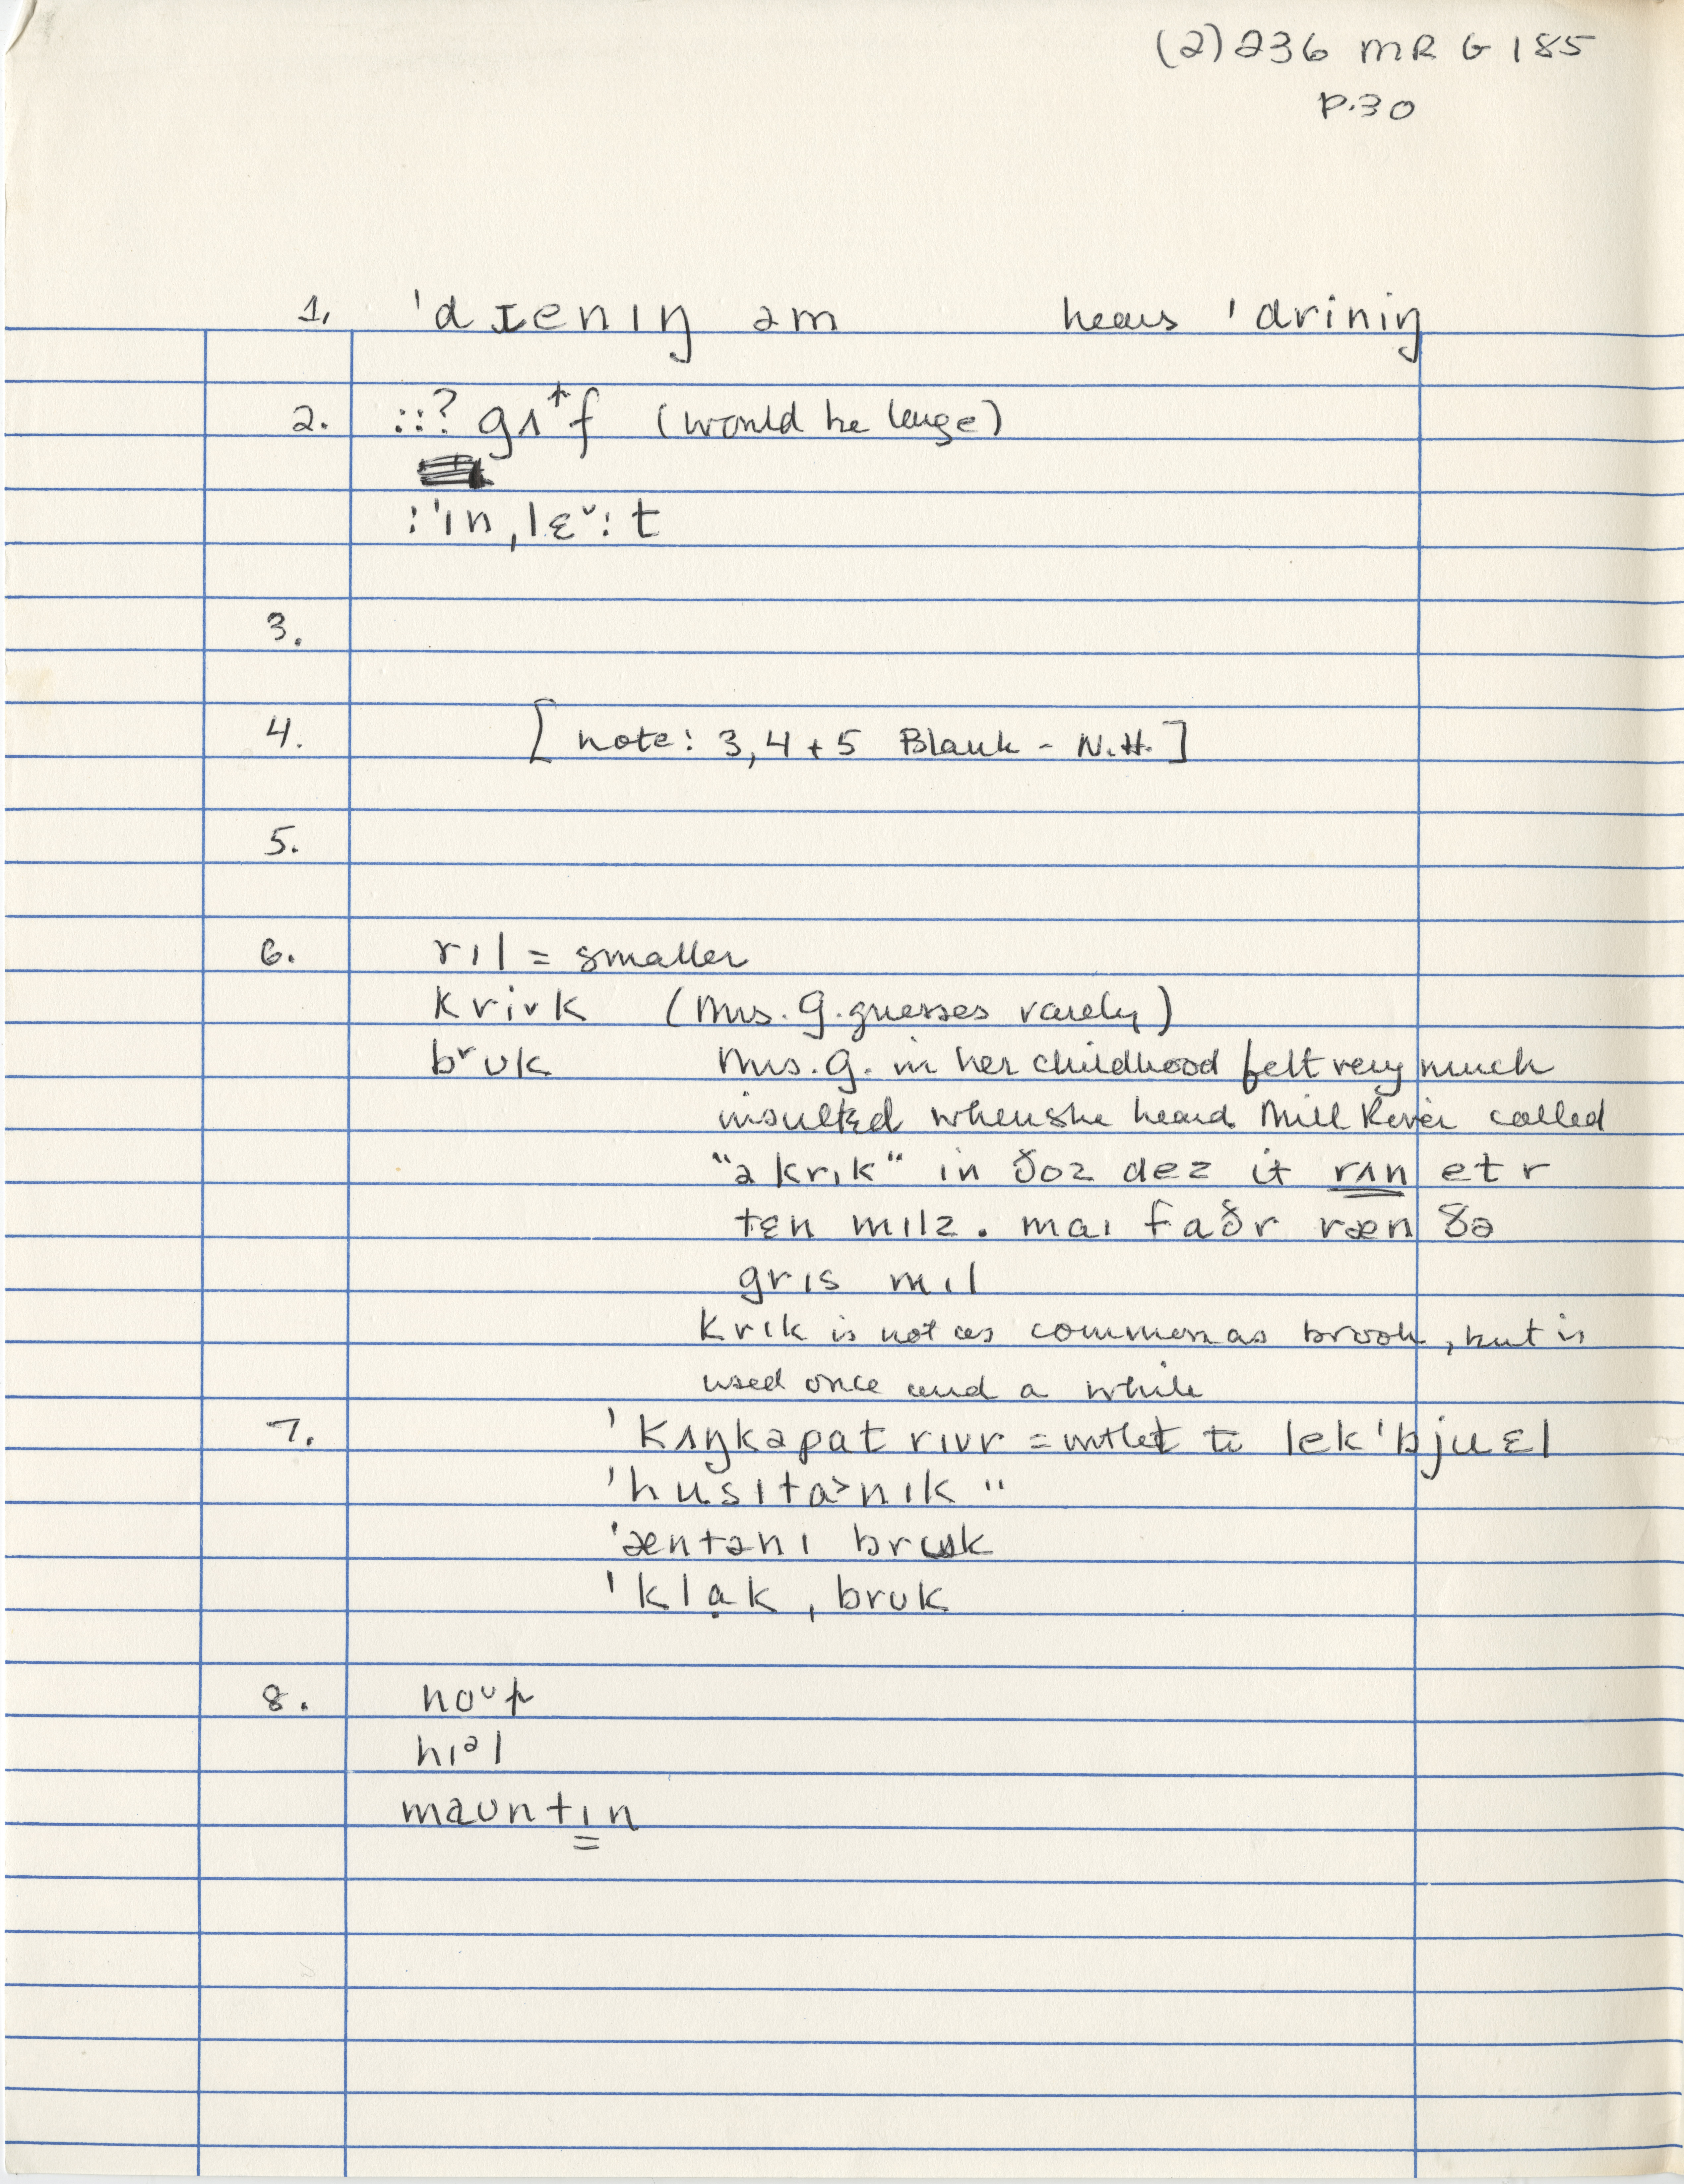 (2) 236 MR G 185
p.30
1. 'dɪenɪŋ əm hears 'driniŋ
2. ::? gʌ↑f (would be large)
:'ɪn,lɛ˅:t
3.
4. [note: 3, 4 + 5 Blank - N.H.]
5.
6. rɪl = smaller
kri˅k (Mrs. G. guesses rarely)
brʊk Mrs. G. in her childhood felt very much
insulted when she heard Mill River called
"ə krɪk" in ðoz dez it rʌn et r
tɛn mɪlz. maɪ faðr ræn ðə
grɪs mɪl
krɪk is not as common as brook, but is
used once and a while
7. 'kʌŋkəpat rɪvr = outlet to lek 'bjuɛl
'husɪta>nɪk "
'æntənɪ brʊk
'klạk ,brʊk
8. noʊp
hɪᵊl
maʊntɪn